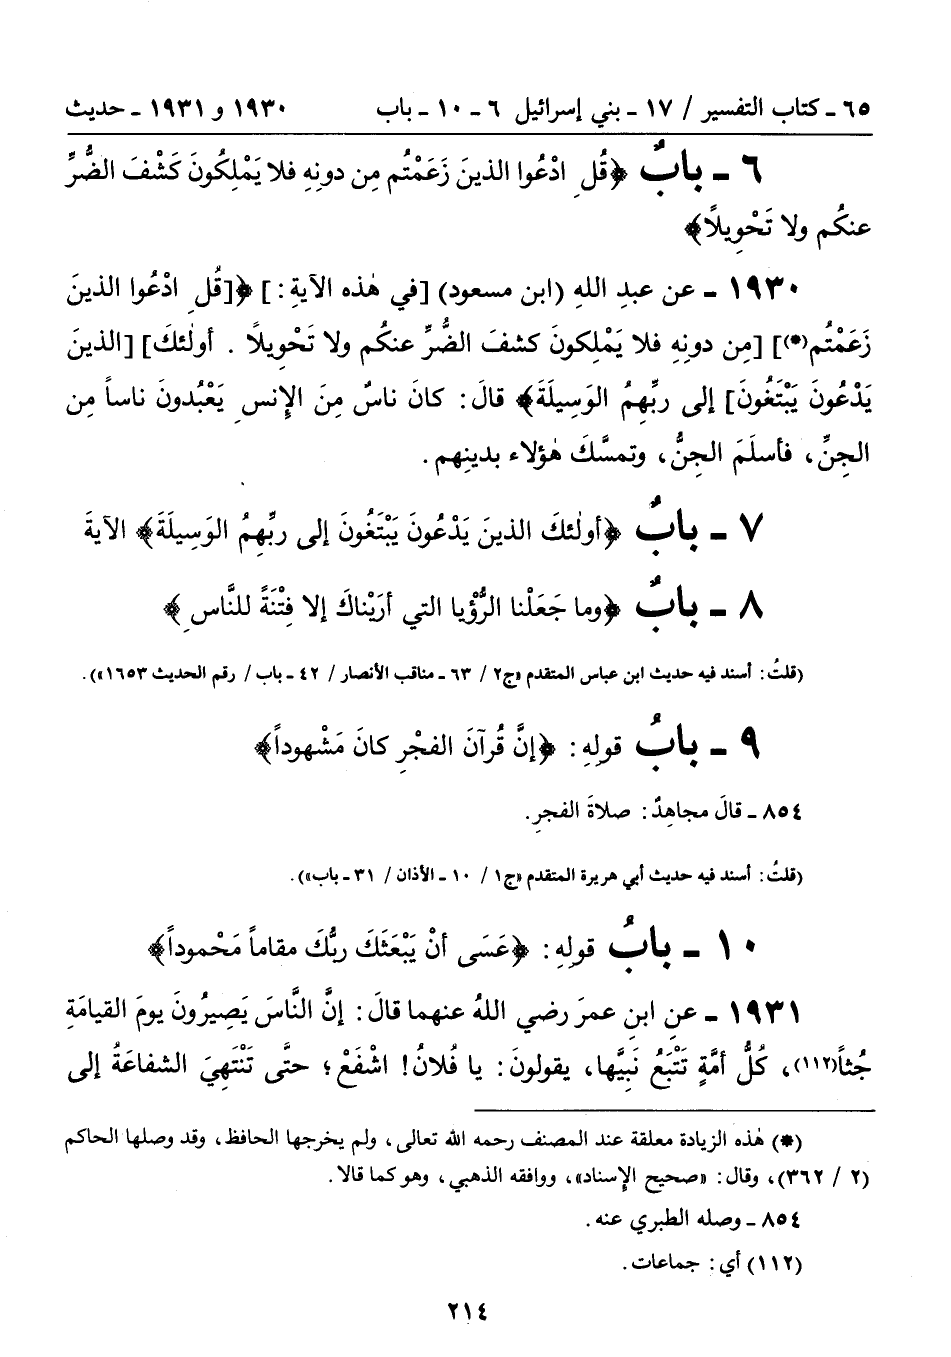 ٦٥ - كتاب التفسير / ١٧ - بني إسرائيل ٦ - ١٠ - باب ١٩٣٠ و ١٩٣١ - حديث
٦ - بابٌ ﴿قُلِ ادْعُوا الذينَ زَعَمْتُم مِن دونِهِ فلا يَمْلِكُونَ كَشْفَ الضُّرِّ
عنكُم ولا تَحْوِيلاً﴾
١٩٣٠ - عن عبدِ اللهِ (ابن مسعود) [في هٰذه الآيةِ:] ﴿[قُلِ ادْعُوا الذينَ
زَعَمْتُم(*)] [مِن دونِهِ فلا يَمْلِكونَ كشفَ الضُّرِّ عنكُم ولا تَحْوِيلاً . أولٰئكَ] [الذينَ
يَدْعُونَ يَبْتَغُونَ] إلى ربِّهِمُ الوَسِيلَةَ﴾ قالَ: كانَ ناسٌ مِنَ الإِنسِ يَعْبُدونَ ناساً مِن
الجِنِّ، فأسلَمَ الجِنُّ، وتمسَّكَ هٰؤلاء بدينِهم.
٧ - بابٌ ﴿أولٰئكَ الذينَ يَدْعُونَ يَبْتَغُونَ إلى ربِّهِمُ الوَسِيلَةَ﴾ الآيةَ
٨ - بابٌ ﴿وما جَعَلْنا الرُّؤيا التي أرَيْناكَ إلا فِتْنَةً للنَّاسِ﴾
(قلتُ: أسند فيه حديث ابن عباس المتقدم «ج٢ / ٦٣ - مناقب الأنصار / ٤٢ - باب / رقم الحديث ١٦٥٣»).
٩ - بابُ قولِهِ: ﴿إنَّ قُرآنَ الفجْرِ كانَ مَشْهوداً﴾
٨٥٤ - قالَ مجاهِدٌ: صلاةَ الفجرِ.
(قلتُ: أسند فيه حديث أبي هريرة المتقدم «ج١ / ١٠ - الأذان / ٣١ - باب»).
١٠ - بابُ قولِهِ: ﴿عَسَى أنْ يَبْعَثَكَ ربُّكَ مقاماً مَحْموداً﴾
١٩٣١ - عنِ ابنِ عمرَ رضي اللهُ عنهما قالَ: إنَّ النَّاسَ يَصِيرُونَ يومَ القيامَةِ
جُثاً(١١٢)، كُلُّ أمَّةٍ تَتْبَعُ نَبيَّها، يقولونَ: يا فُلانُ! اشْفَعْ؛ حتَّى تَنْتَهِيَ الشفاعَةُ إلى
(*) هٰذه الزيادة معلقة عند المصنف رحمه الله تعالى، ولم يخرجها الحافظ، وقد وصلها الحاكم
(٢ / ٣٦٢)، وقال: «صحيح الإسناد»، ووافقه الذهبي، وهو كما قالا.
٨٥٤ - وصله الطبري عنه.
(١١٢) أي: جماعات.
٢١٤